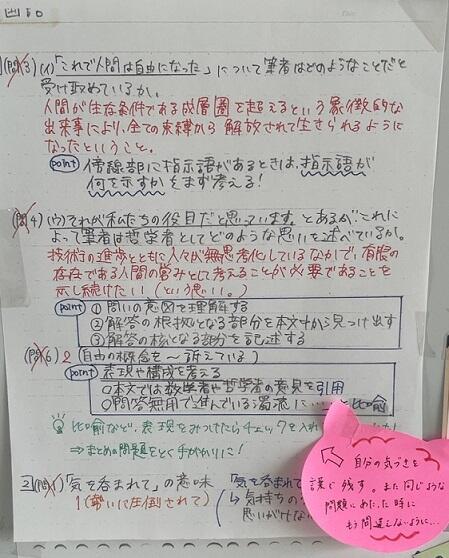 (問3)(イ)「これで人間は自由になった」について筆者はどのようなことだと
受け取めているか。
人間が生存条件である成層圏を超えるという象徴的な
出来事により、全ての束縛から解放されて生きられるように
なったということ。
point 傍線部に指示語があるときは、指示語が
何を示すかをまず考える!
(問4)(ウ)それが私たちの役目だと思っています とあるが「これに
よって筆者は哲学者としてどのような思いを述べているか。
技術の進歩とともに人々が無思考化しているなかで、有限の
存在である人間の営みとして考えることが必要であることを
示し続けたい(という思い。)
point ①問いの意図を理解する
②解答の根拠となる部分を本文中から見つけ出す
③解答の核となる部分を記述する
(問6) 2 (自由の概念を〜訴えている)
point 表現や構成を考える
○本文では数学者や哲学者の意見を引用
○問答無用で進んでいる濁流に 比喩
比喩など、表現をみつけたらチェックを入れ
⇒まとめの問題をとく手がかりに!
2(問1)「気を呑まれて」の意味
1(勢いで圧倒されて)
「気を呑まれて
↳気持ちの
思いがけな
自分の気づきを
謙虚に残す。また同じような
問題にあたった時に
もう間違しないように...